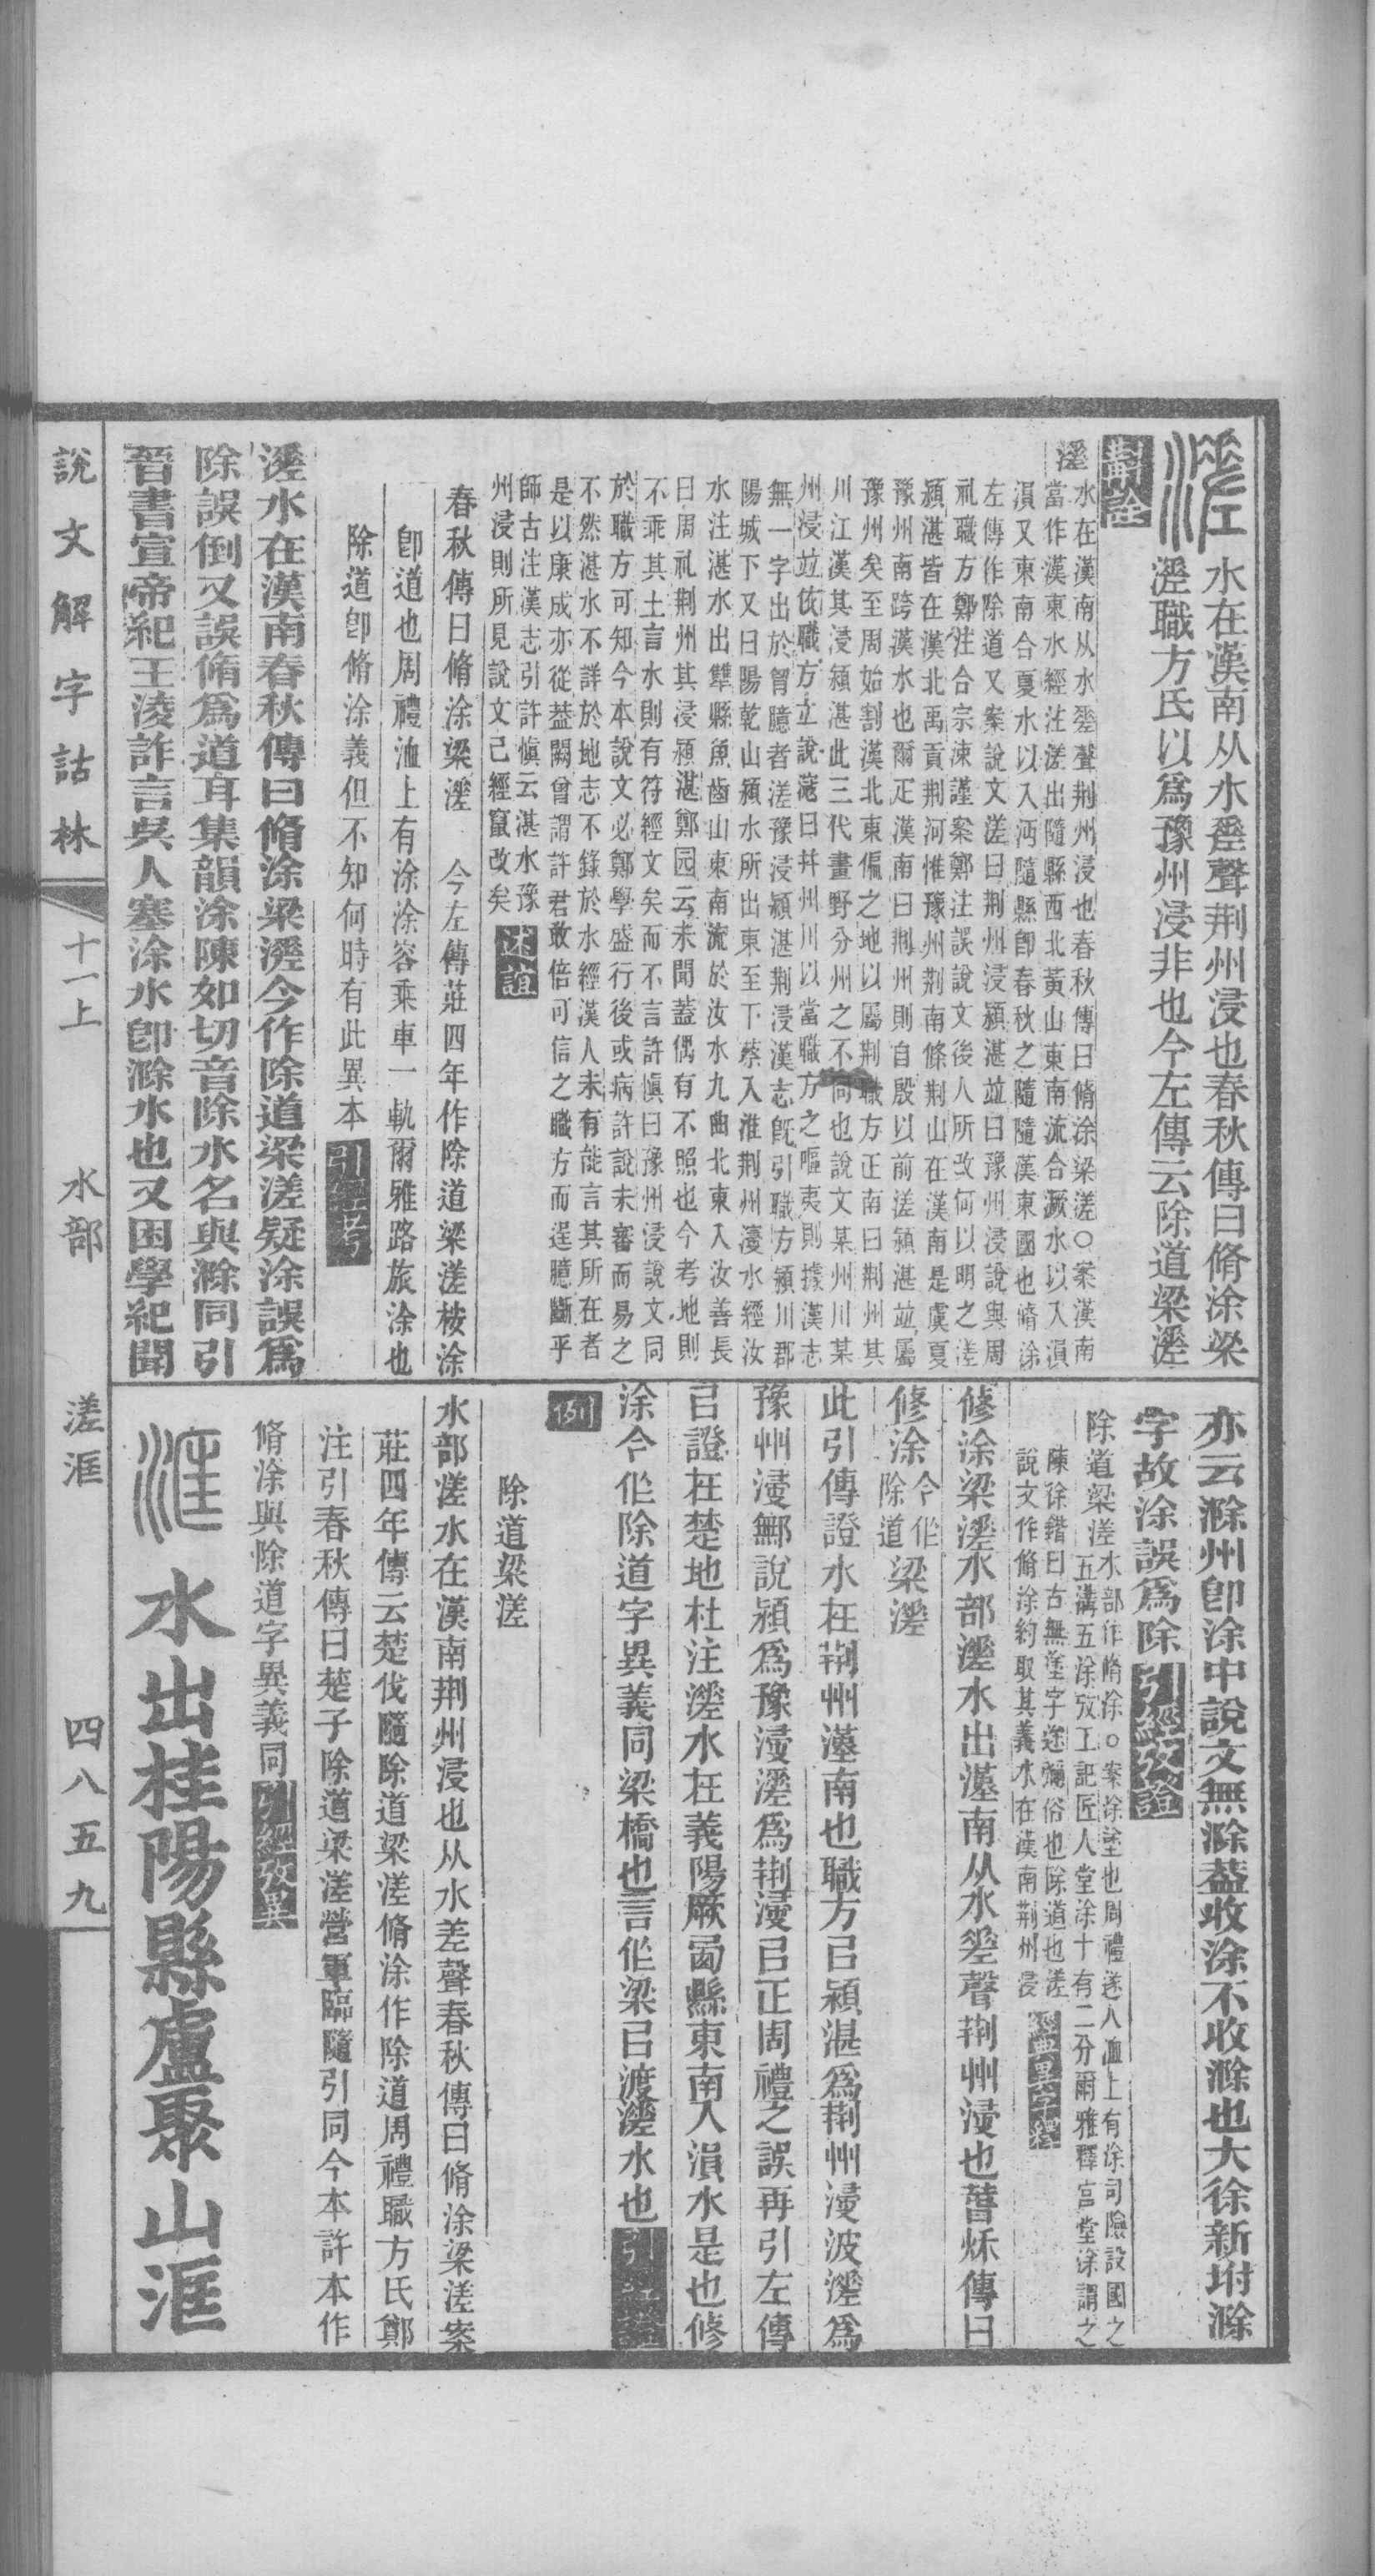 水在漢南从水𡍮聲荆州浸也春秋傳曰脩涂梁
溠職方氏以爲豫州浸非也今左傳云除道梁溠
斠詮
溠
水在漢南从水𡍮聲荆州浸也春秋傳曰脩涂梁溠○案漢南
當作漢東水經注溠出隨縣西北黃山東南流合㵐水以入溳
溳又東南合夏水以入沔隨縣卽春秋之隨隨漢東國也脩涂
左傳作除道又案說文溠曰荆州浸潁湛竝曰豫州浸說與周
礼職方鄭注合宗涑謹案鄭注誤說文後人所改何以明之溠
潁湛皆在漢北禹貢荆河惟豫州荆南條荆山在漢南是虞夏
豫州南跨漢水也爾疋漢南曰荆州則自殷以前溠潁湛竝屬
豫州矣至周始割漢北東偏之地以屬荆職方正南曰荆州其
川江漢其浸潁湛此三代畫野分州之不同也說文某州川某
州浸竝依職方立說滱曰幷州川以當職方之嘔夷則據漢志
無一字出於胷臆者溠豫浸潁湛荆浸漢志旣引職方潁川郡
陽城下又曰陽乾山潁水所出東至下蔡入淮荆州㵕水經汝
水注湛水出犨縣魚齒山東南流於汝水九曲北東入汝善長
曰周礼荆州其浸潁湛鄭园云未聞蓋偶有不照也今考地則
不乖其土言水則有符經文矣而不言許愼曰豫州浸說文同
於職方可知今本說文必鄭學盛行後或病許說未審而易之
不然湛水不詳於地志不錄於水經漢人未有能言其所在者
是以康成亦從葢闕曾謂許君敢倍可信之職方而逞臆斷乎
師古注漢志引許愼云湛水豫
州浸則所見說文已經竄改矣 述誼
春秋傳曰脩涂梁溠 今左傳莊四年作除道梁溠桉涂
卽道也周禮洫上有涂涂容乘車一軌爾雅路旅涂也
除道卽脩涂義但不知何時有此異本 引經考
溠水在漢南春秋傳曰脩涂梁溠今作除道梁溠疑涂誤爲
除誤倒又誤脩爲道耳集韻涂陳如切音除水名與滁同引
晉書宣帝紀王淩詐言吳人塞涂水卽滁水也又困學紀聞
亦云滁州卽涂中說文無滁葢收涂不收滁也大徐新坿滁
字故涂誤爲除 引經攷證
除道梁溠
水部作脩涂○案涂塗也周禮遂人洫上有涂司險設國之
五溝五涂攷工記匠人堂涂十有二分爾雅釋宮堂涂謂之
陳徐鍇曰古無塗字途彌俗也除道也溠
說文作脩涂約取其義水在漢南荆州浸 經典異字釋
修涂梁溠水部溠水出漢南从水𡍮聲荆州濅也萅秌傳曰
修涂今作除道梁溠
此引傳證水在荆州漢南也職方㠯潁湛爲荆州濅波溠爲
豫州濅鄦說潁爲豫濅溠爲荆濅㠯正周禮之誤再引左傳
㠯證在楚地杜注溠水在義陽厥㫚縣東南入溳水是也修
涂今作除道字異義同梁橋也言作梁㠯渡溠水也 引經證
例
除道梁溠
水部溠水在漢南荆州浸也从水差聲春秋傳曰脩涂梁溠案
莊四年傳云楚伐隨除道梁溠脩涂作除道周禮職方氏鄭
注引春秋傳曰楚子除道梁溠營軍臨隨引同今本許本作
脩涂與除道字異義同 引經攷異
水出桂陽縣盧聚山洭
說文解字詁林 十一上 水部 溠洭 四八五九